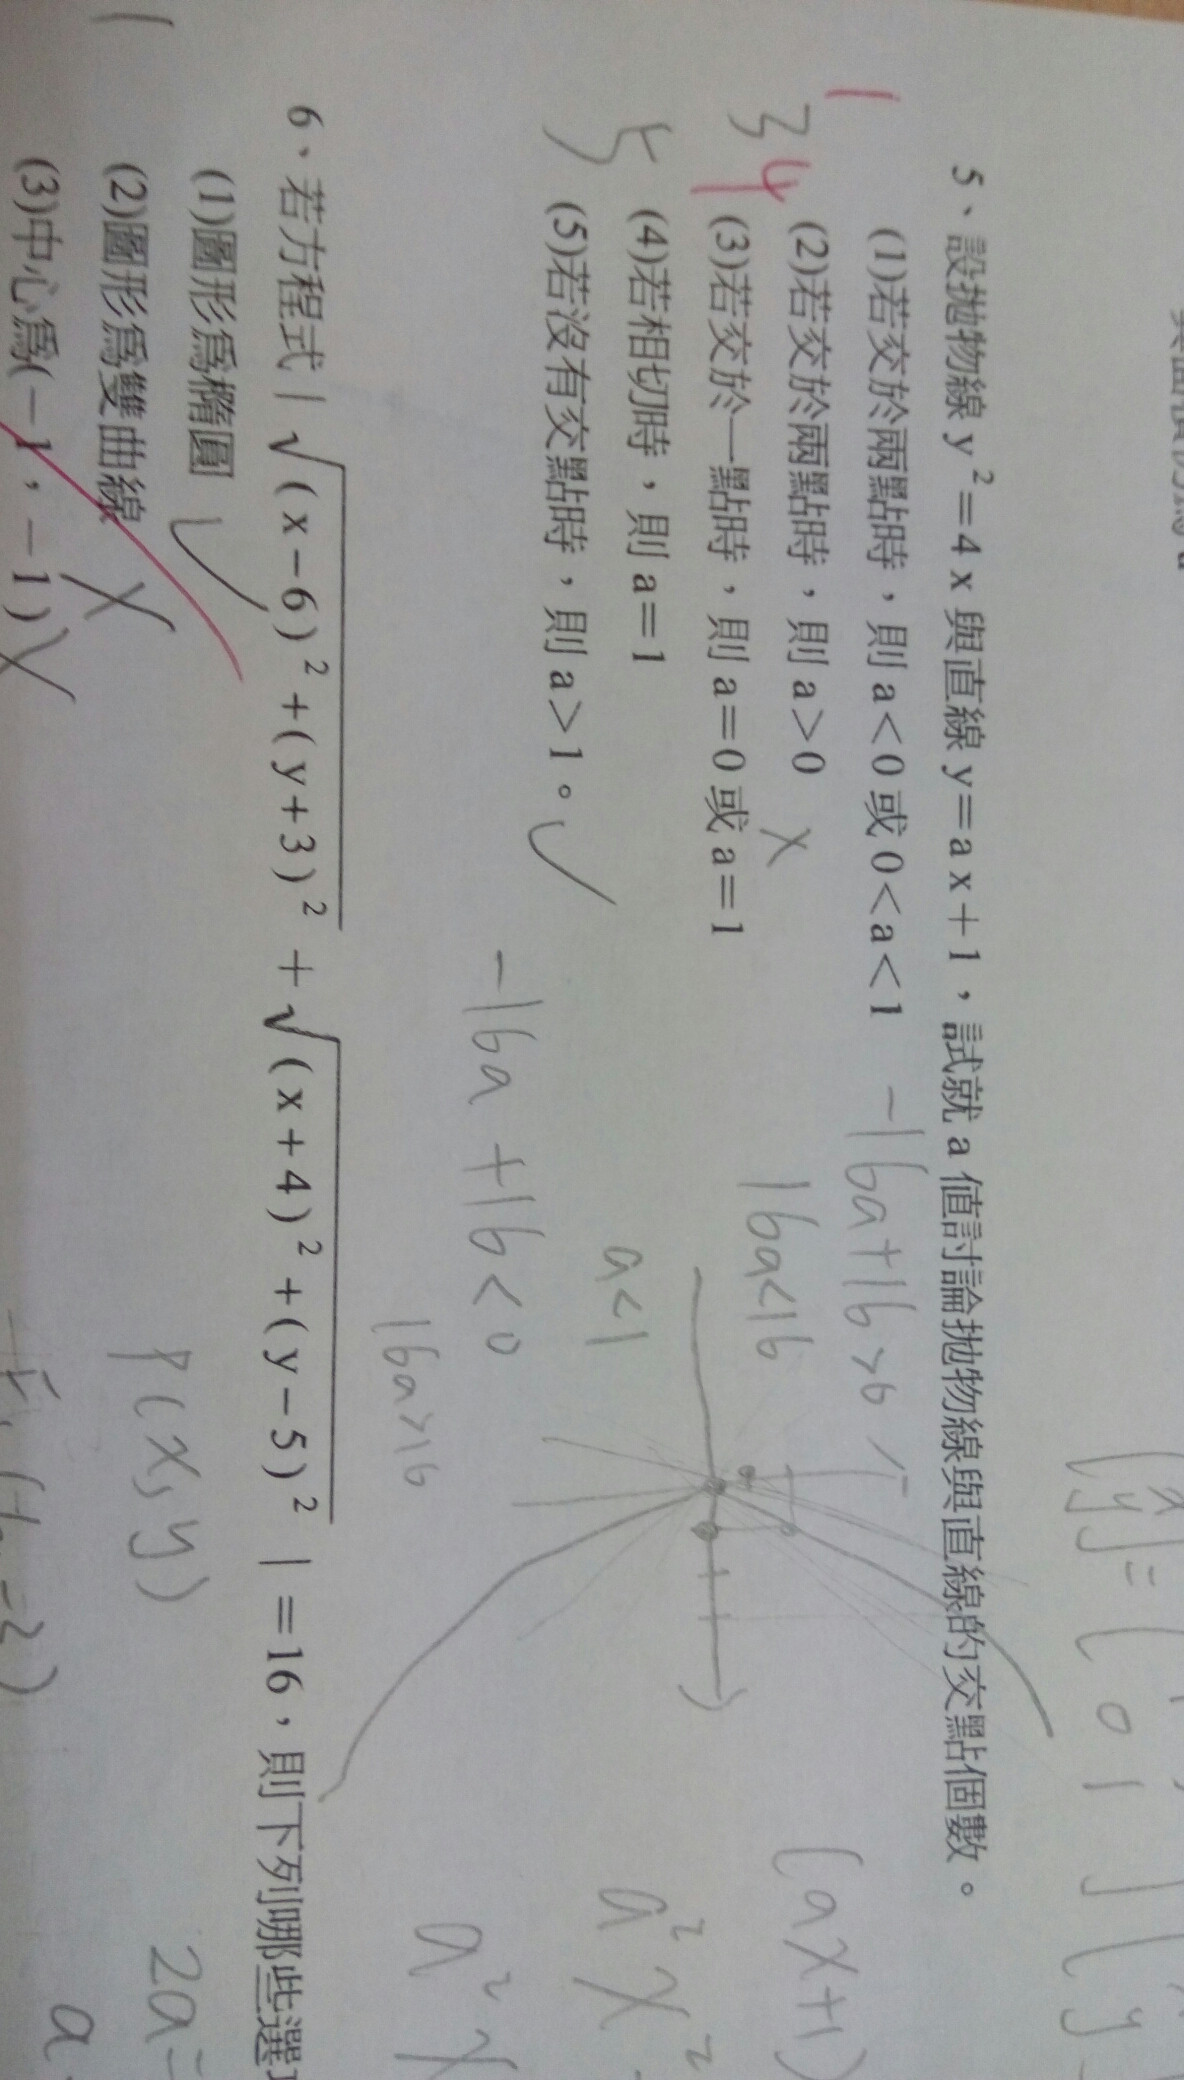 5、設拋物線 y²=4x 與直線 y=ax+1，試就 a 值討論拋物線與直線的交點個數。
(1)若交於兩點時，則 a<0 或 0<a<1
(2)若交於兩點時，則 a>0
(3)若交於一點時，則 a=0 或 a=1
(4)若相切時，則 a=1
(5)若沒有交點時，則 a>1。
1
3 4
5
-16a+16>0
16a<16
a<1
-16a+16<0
16a>16
(ax+1)
a²x²
a²x
6、若方程式 | √(x-6)²+(y+3)² + √(x+4)²+(y-5)² | =16，則下列哪些選
(1)圖形為橢圓
(2)圖形為雙曲線
(3)中心為(-1，-1)
P(x,y)
2a=
a